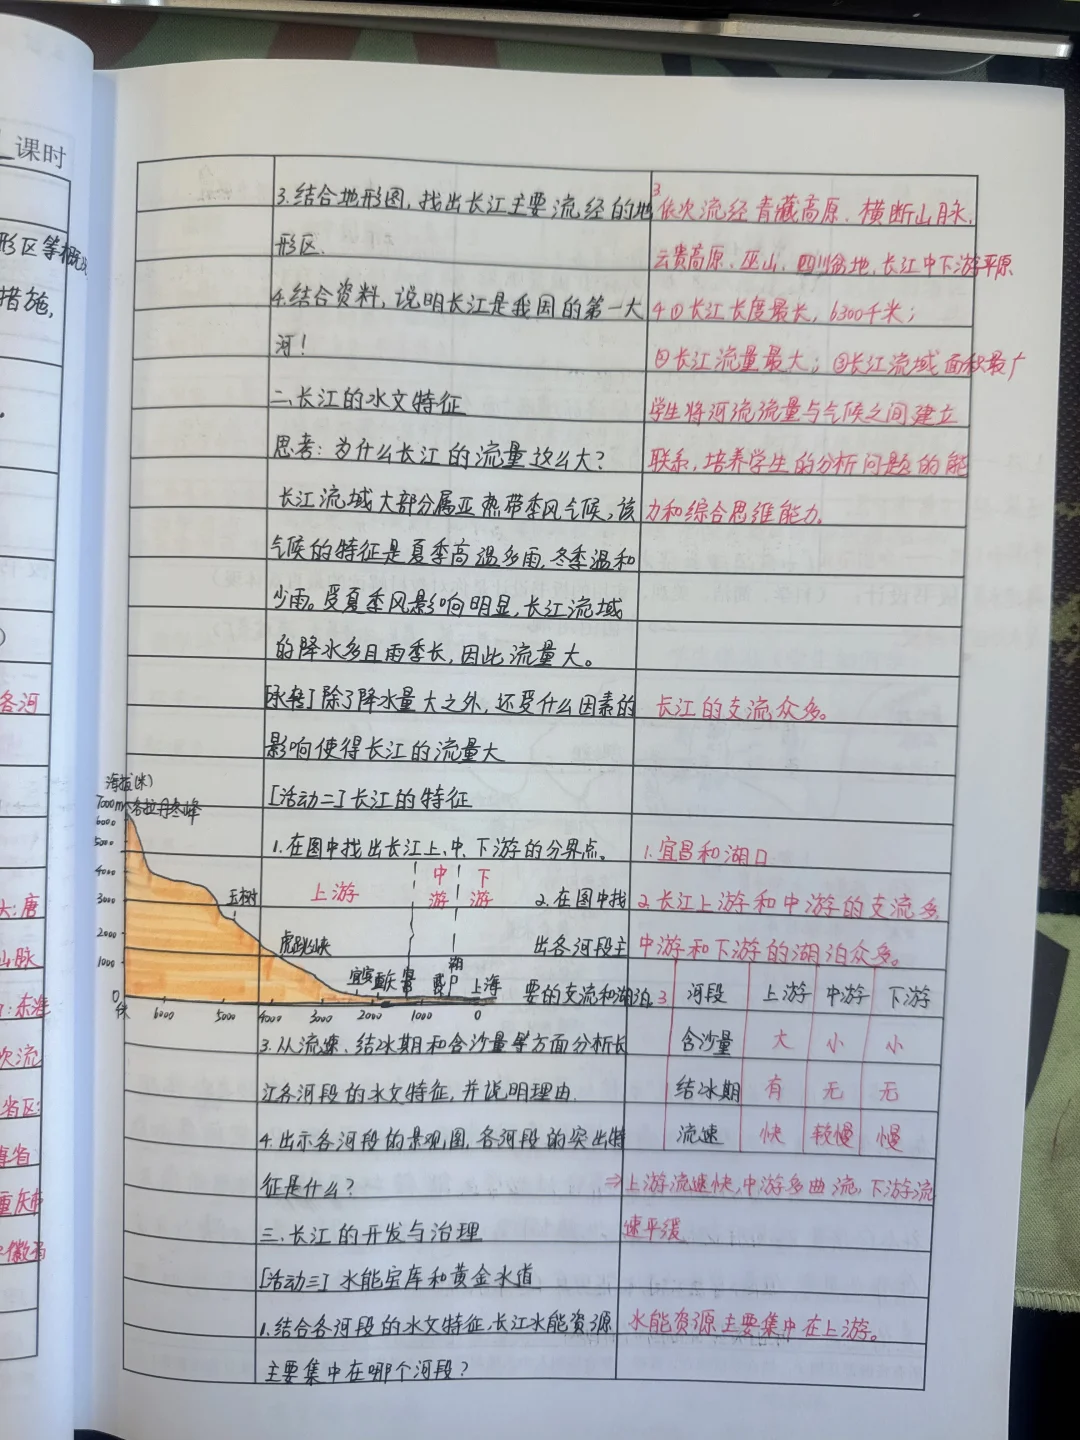 课时
形区等概况
措施,
各河
山脉
次流
3.结合地形图,找出长江主要流经的地
形区.
4.结合资料,说明长江是我国的第一大
河!
二、长江的水文特征
思考:为什么长江的流量这么大?
长江流域大部分属亚热带季风气候,该
气候的特征是夏季高温多雨,冬季温和
少雨。受夏季风影响明显,长江流域
的降水多且雨季长,因此流量大。
[承转]除了降水量大之外,还受什么因素的
影响使得长江的流量大
[活动二]长江的特征
1.在图中找出长江上、中、下游的分界点。
2.在图中找
出各河段主
要的支流和湖泊.
3.从流速、结冰期和含沙量等方面分析长
江各河段的水文特征,并说明理由.
4.出示各河段的景观图,各河段的突出特
征是什么?
三、长江的开发与治理
[活动三]水能宝库和黄金水道
1.结合各河段的水文特征,长江水能资源
主要集中在哪个河段?
海拔(米)
7000m
各拉丹冬峰
6000
5000
4000
3000
2000
1000
0
玉树
虎跳峡
宜宾
重庆
宜昌
湖口
上海
上游
中游
下游
6000 5000 4000 3000 2000 1000 0
3
依次流经青藏高原、横断山脉、
云贵高原、巫山、四川盆地、长江中下游平原
4.①长江长度最长,6300千米;
②长江流量最大;③长江流域面积最广
学生将河流流量与气候之间建立
联系,培养学生的分析问题的能
力和综合思维能力。
长江的支流众多。
1.宜昌和湖口
2.长江上游和中游的支流多
中游和下游的湖泊众多。
3 河段 上游 中游 下游
含沙量 大 小 小
结冰期 有 无 无
流速 快 较慢 慢
⇒上游流速快,中游多曲流,下游流
速平缓
水能资源主要集中在上游。